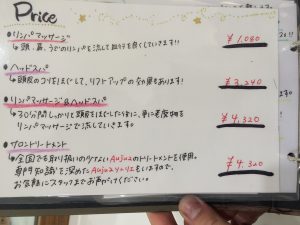 Price
・リンパマッサージ
↳頭、肩、うでのリンパを流して血行を良くしていきます!!
¥1,080
・ヘッドスパ
↳頭皮のコリをほぐして、リフトアップの効果もあります!
¥3,240
・リンパマッサージ&ヘッドスパ
↳30分間しっかりと頭皮をほぐした後に、更に老廃物を
リンパマッサージで流していきます。
¥4,320
・サロントリートメント
↳全国でも取り扱いの少ないAujuaのトリートメントを使用。
専門知識を深めたAujuaソムリエもいますので、
お気軽にスタッフまでお声がけください。
¥4,320